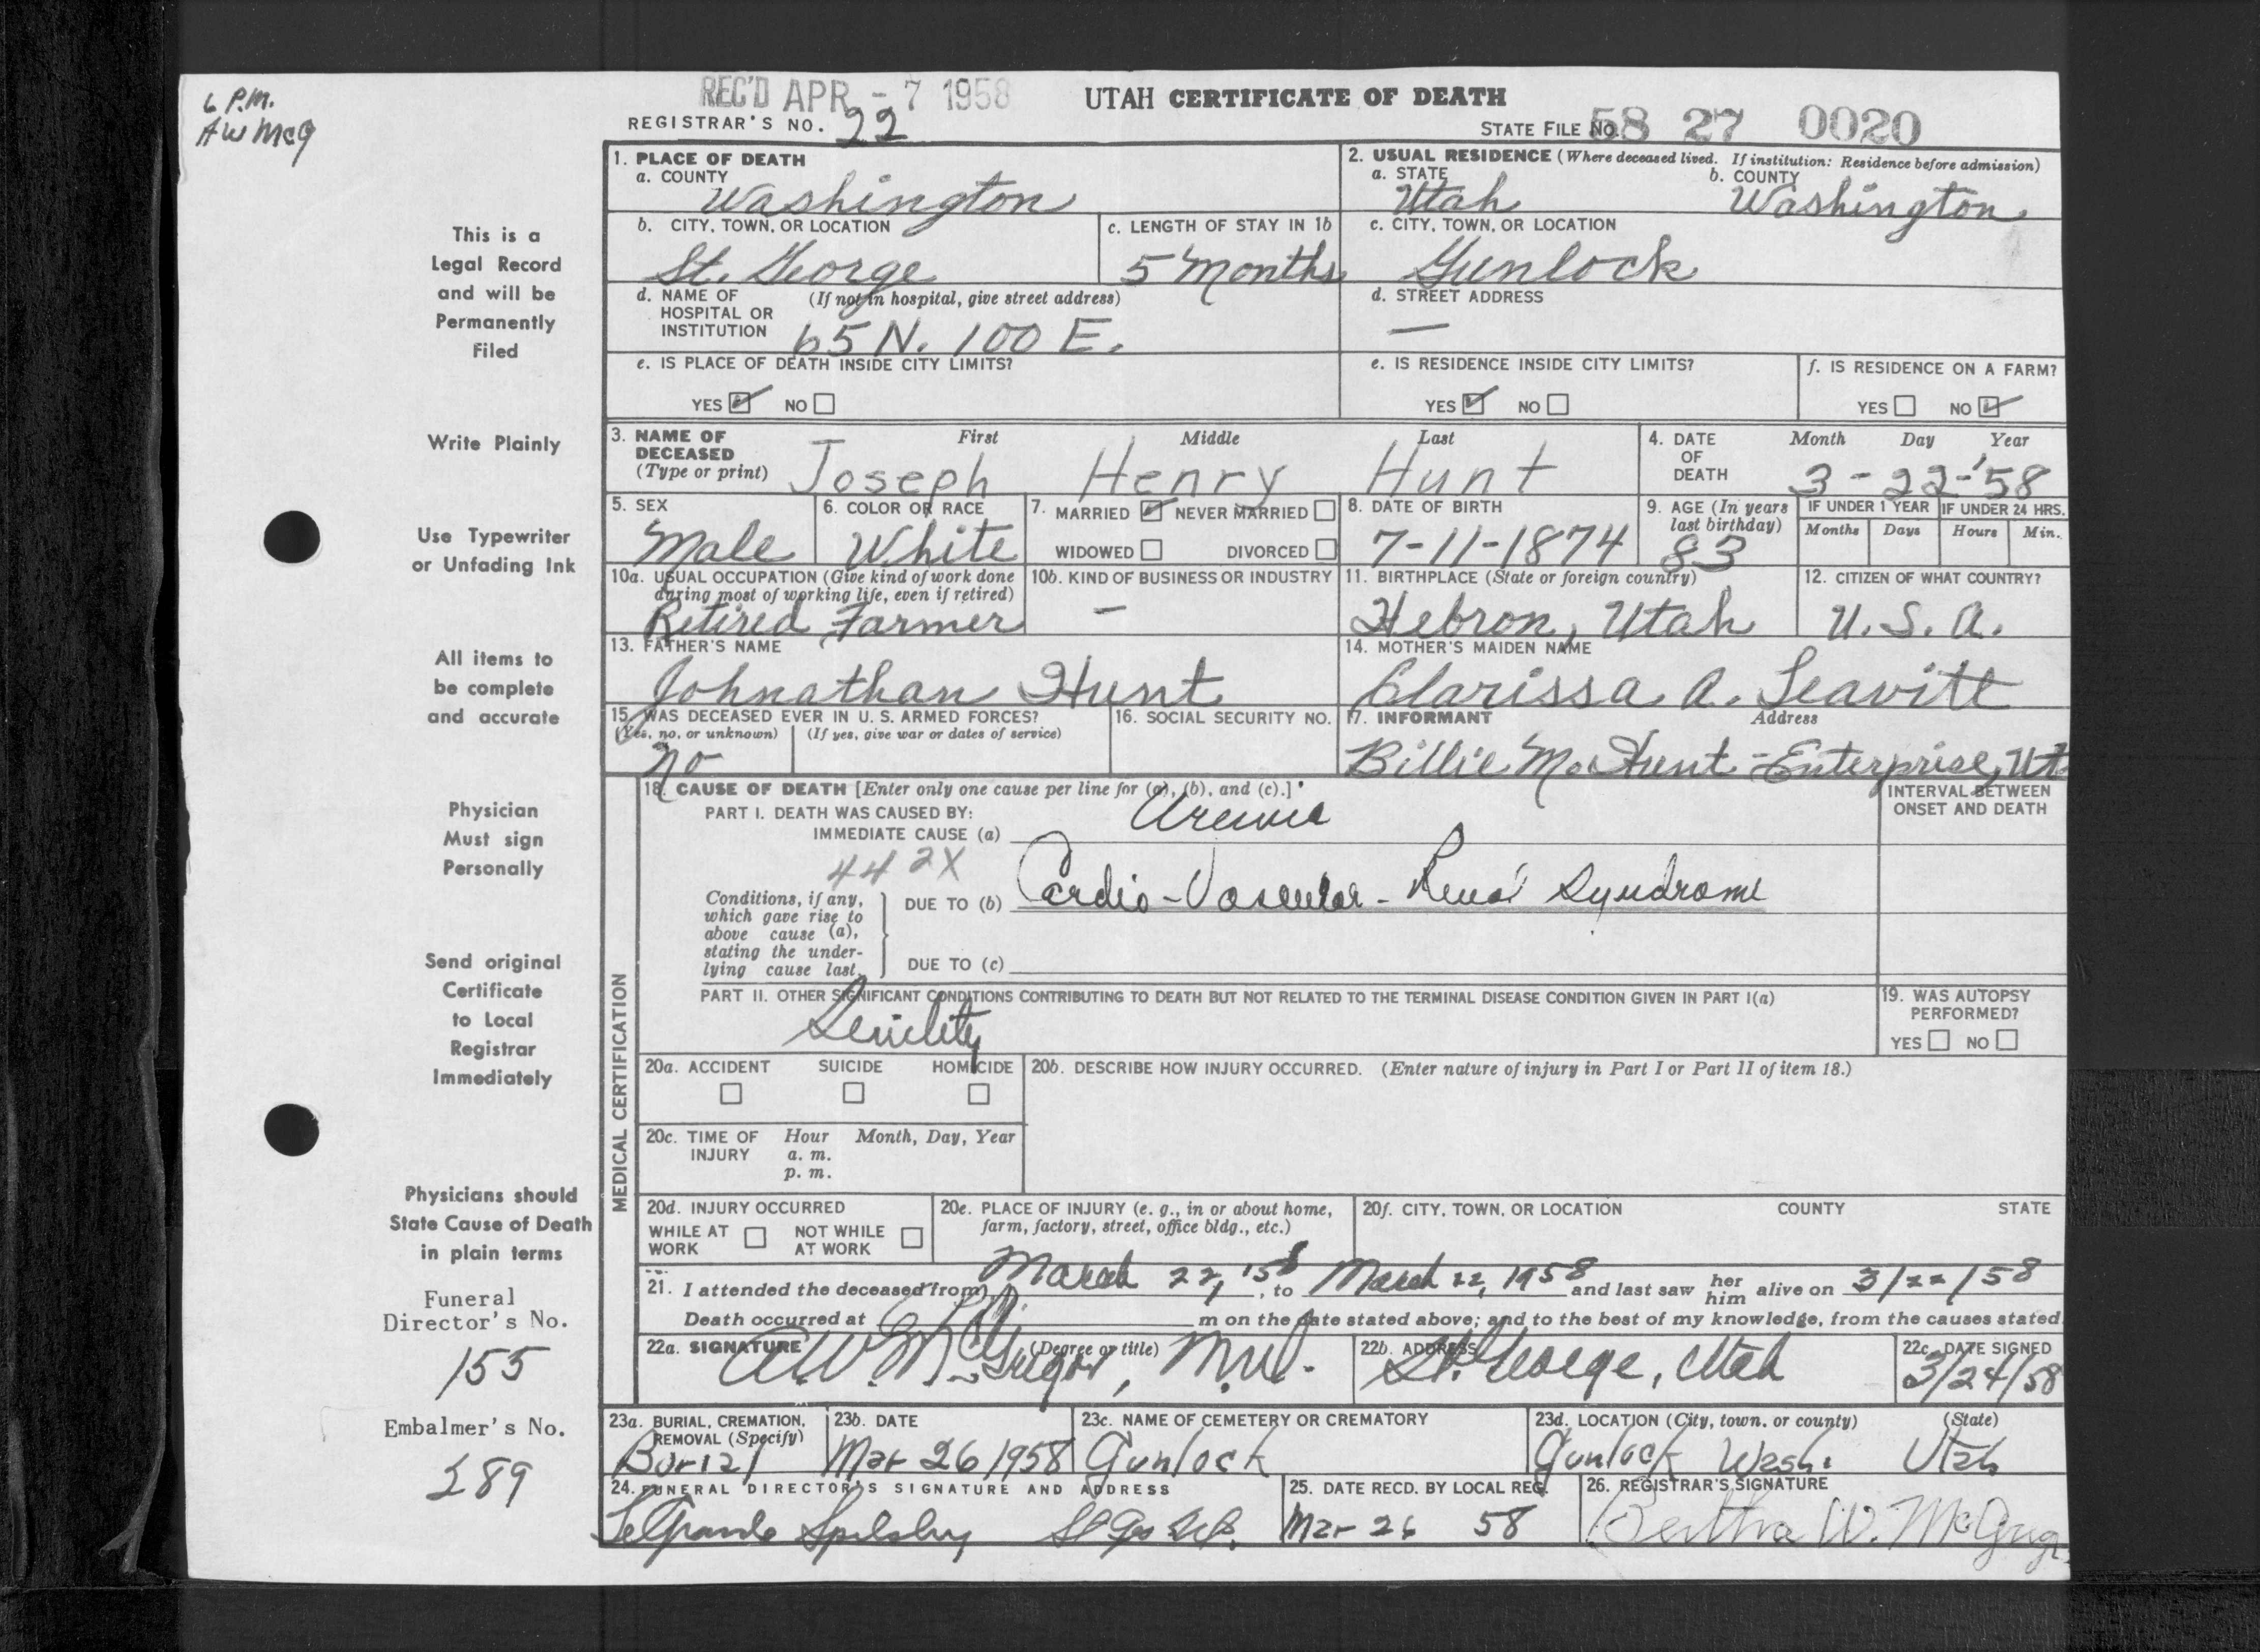 6 P.M.
AW McG
REC'D APR - 7 1958
UTAH CERTIFICATE OF DEATH
REGISTRAR'S NO. 22
STATE FILE NO. 58 27 0020
This is a
Legal Record
and will be
Permanently
Filed
Write Plainly
Use Typewriter
or Unfading Ink
All items to
be complete
and accurate
Physician
Must sign
Personally
Send original
Certificate
to Local
Registrar
Immediately
Physicians should
State Cause of Death
in plain terms
Funeral
Director's No.
155
Embalmer's No.
289
1. PLACE OF DEATH
a. COUNTY
Washington
2. USUAL RESIDENCE (Where deceased lived. If institution: Residence before admission)
a. STATE
Utah
b. COUNTY
Washington
b. CITY, TOWN, OR LOCATION
St. George
c. LENGTH OF STAY IN 1b
5 Months
c. CITY, TOWN, OR LOCATION
Gunlock
d. NAME OF (If not in hospital, give street address)
HOSPITAL OR
INSTITUTION 65 N. 100 E.
d. STREET ADDRESS
—
e. IS PLACE OF DEATH INSIDE CITY LIMITS?
YES NO
e. IS RESIDENCE INSIDE CITY LIMITS?
YES NO
f. IS RESIDENCE ON A FARM?
YES NO
3. NAME OF DECEASED (Type or print)
First Middle Last
Joseph Henry Hunt
4. DATE OF DEATH
Month Day Year
3-22-'58
5. SEX
Male
6. COLOR OR RACE
White
7. MARRIED NEVER MARRIED
WIDOWED DIVORCED
8. DATE OF BIRTH
7-11-1874
9. AGE (In years last birthday)
83
IF UNDER 1 YEAR
Months Days
IF UNDER 24 HRS.
Hours Min.
10a. USUAL OCCUPATION (Give kind of work done
during most of working life, even if retired)
Retired Farmer
10b. KIND OF BUSINESS OR INDUSTRY
–
11. BIRTHPLACE (State or foreign country)
Hebron, Utah
12. CITIZEN OF WHAT COUNTRY?
U.S.A.
13. FATHER'S NAME
Johnathan Hunt
14. MOTHER'S MAIDEN NAME
Clarissa A. Leavitt
15. WAS DECEASED EVER IN U. S. ARMED FORCES?
(Yes, no, or unknown) (If yes, give war or dates of service)
No
16. SOCIAL SECURITY NO.
17. INFORMANT Address
Billie M. Hunt - Enterprise, Ut.
MEDICAL CERTIFICATION
18. CAUSE OF DEATH [Enter only one cause per line for (a), (b), and (c).]
INTERVAL BETWEEN
ONSET AND DEATH
PART I. DEATH WAS CAUSED BY:
IMMEDIATE CAUSE (a) Uremia
442X
Conditions, if any,
which gave rise to
above cause (a),
stating the under-
lying cause last.
DUE TO (b) Cardio-Vascular-Renal Syndrome
DUE TO (c)
PART II. OTHER SIGNIFICANT CONDITIONS CONTRIBUTING TO DEATH BUT NOT RELATED TO THE TERMINAL DISEASE CONDITION GIVEN IN PART I(a)
Senility
19. WAS AUTOPSY
PERFORMED?
YES NO
20a. ACCIDENT SUICIDE HOMICIDE
20b. DESCRIBE HOW INJURY OCCURRED. (Enter nature of injury in Part I or Part II of item 18.)
20c. TIME OF INJURY
Hour Month, Day, Year
a. m.
p. m.
20d. INJURY OCCURRED
WHILE AT WORK NOT WHILE AT WORK
20e. PLACE OF INJURY (e. g., in or about home,
farm, factory, street, office bldg., etc.)
20f. CITY, TOWN, OR LOCATION COUNTY STATE
21. I attended the deceased from March 22, '58, to March 22, 1958 and last saw her him alive on 3/22/58
Death occurred at m on the date stated above; and to the best of my knowledge, from the causes stated
22a. SIGNATURE (Degree or title)
A.W. McGregor, M.D.
22b. ADDRESS
St. George, Utah
22c. DATE SIGNED
3/24/58
23a. BURIAL, CREMATION,
REMOVAL (Specify)
Burial
23b. DATE
Mar 26 1958
23c. NAME OF CEMETERY OR CREMATORY
Gunlock
23d. LOCATION (City, town, or county) (State)
Gunlock Wash. Utah
24. FUNERAL DIRECTOR'S SIGNATURE AND ADDRESS
Spilsbury
25. DATE RECD. BY LOCAL REG.
Mar 26 58
26. REGISTRAR'S SIGNATURE
Bertha W. McGregor